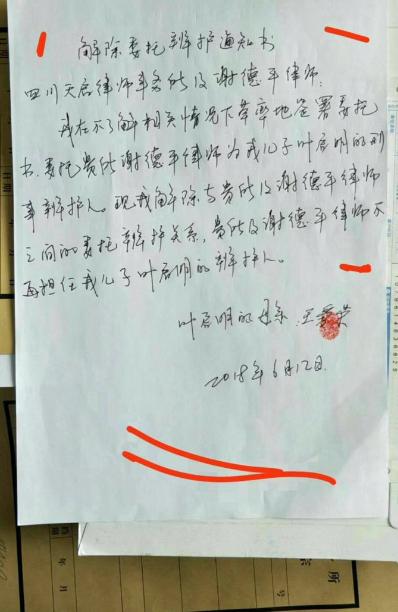 解除委托辩护通知书
四川天启律师事务所及谢德平律师：
我在不了解相关情况下草率地签署委托
书，委托贵所谢德平律师为我儿子叶启明的刑
事辩护人。现我解除与贵所及谢德平律师
之间的委托辩护关系，贵所及谢德平律师不
再担任我儿子叶启明的辩护人。
叶启明的母亲：王
2018年6月12日